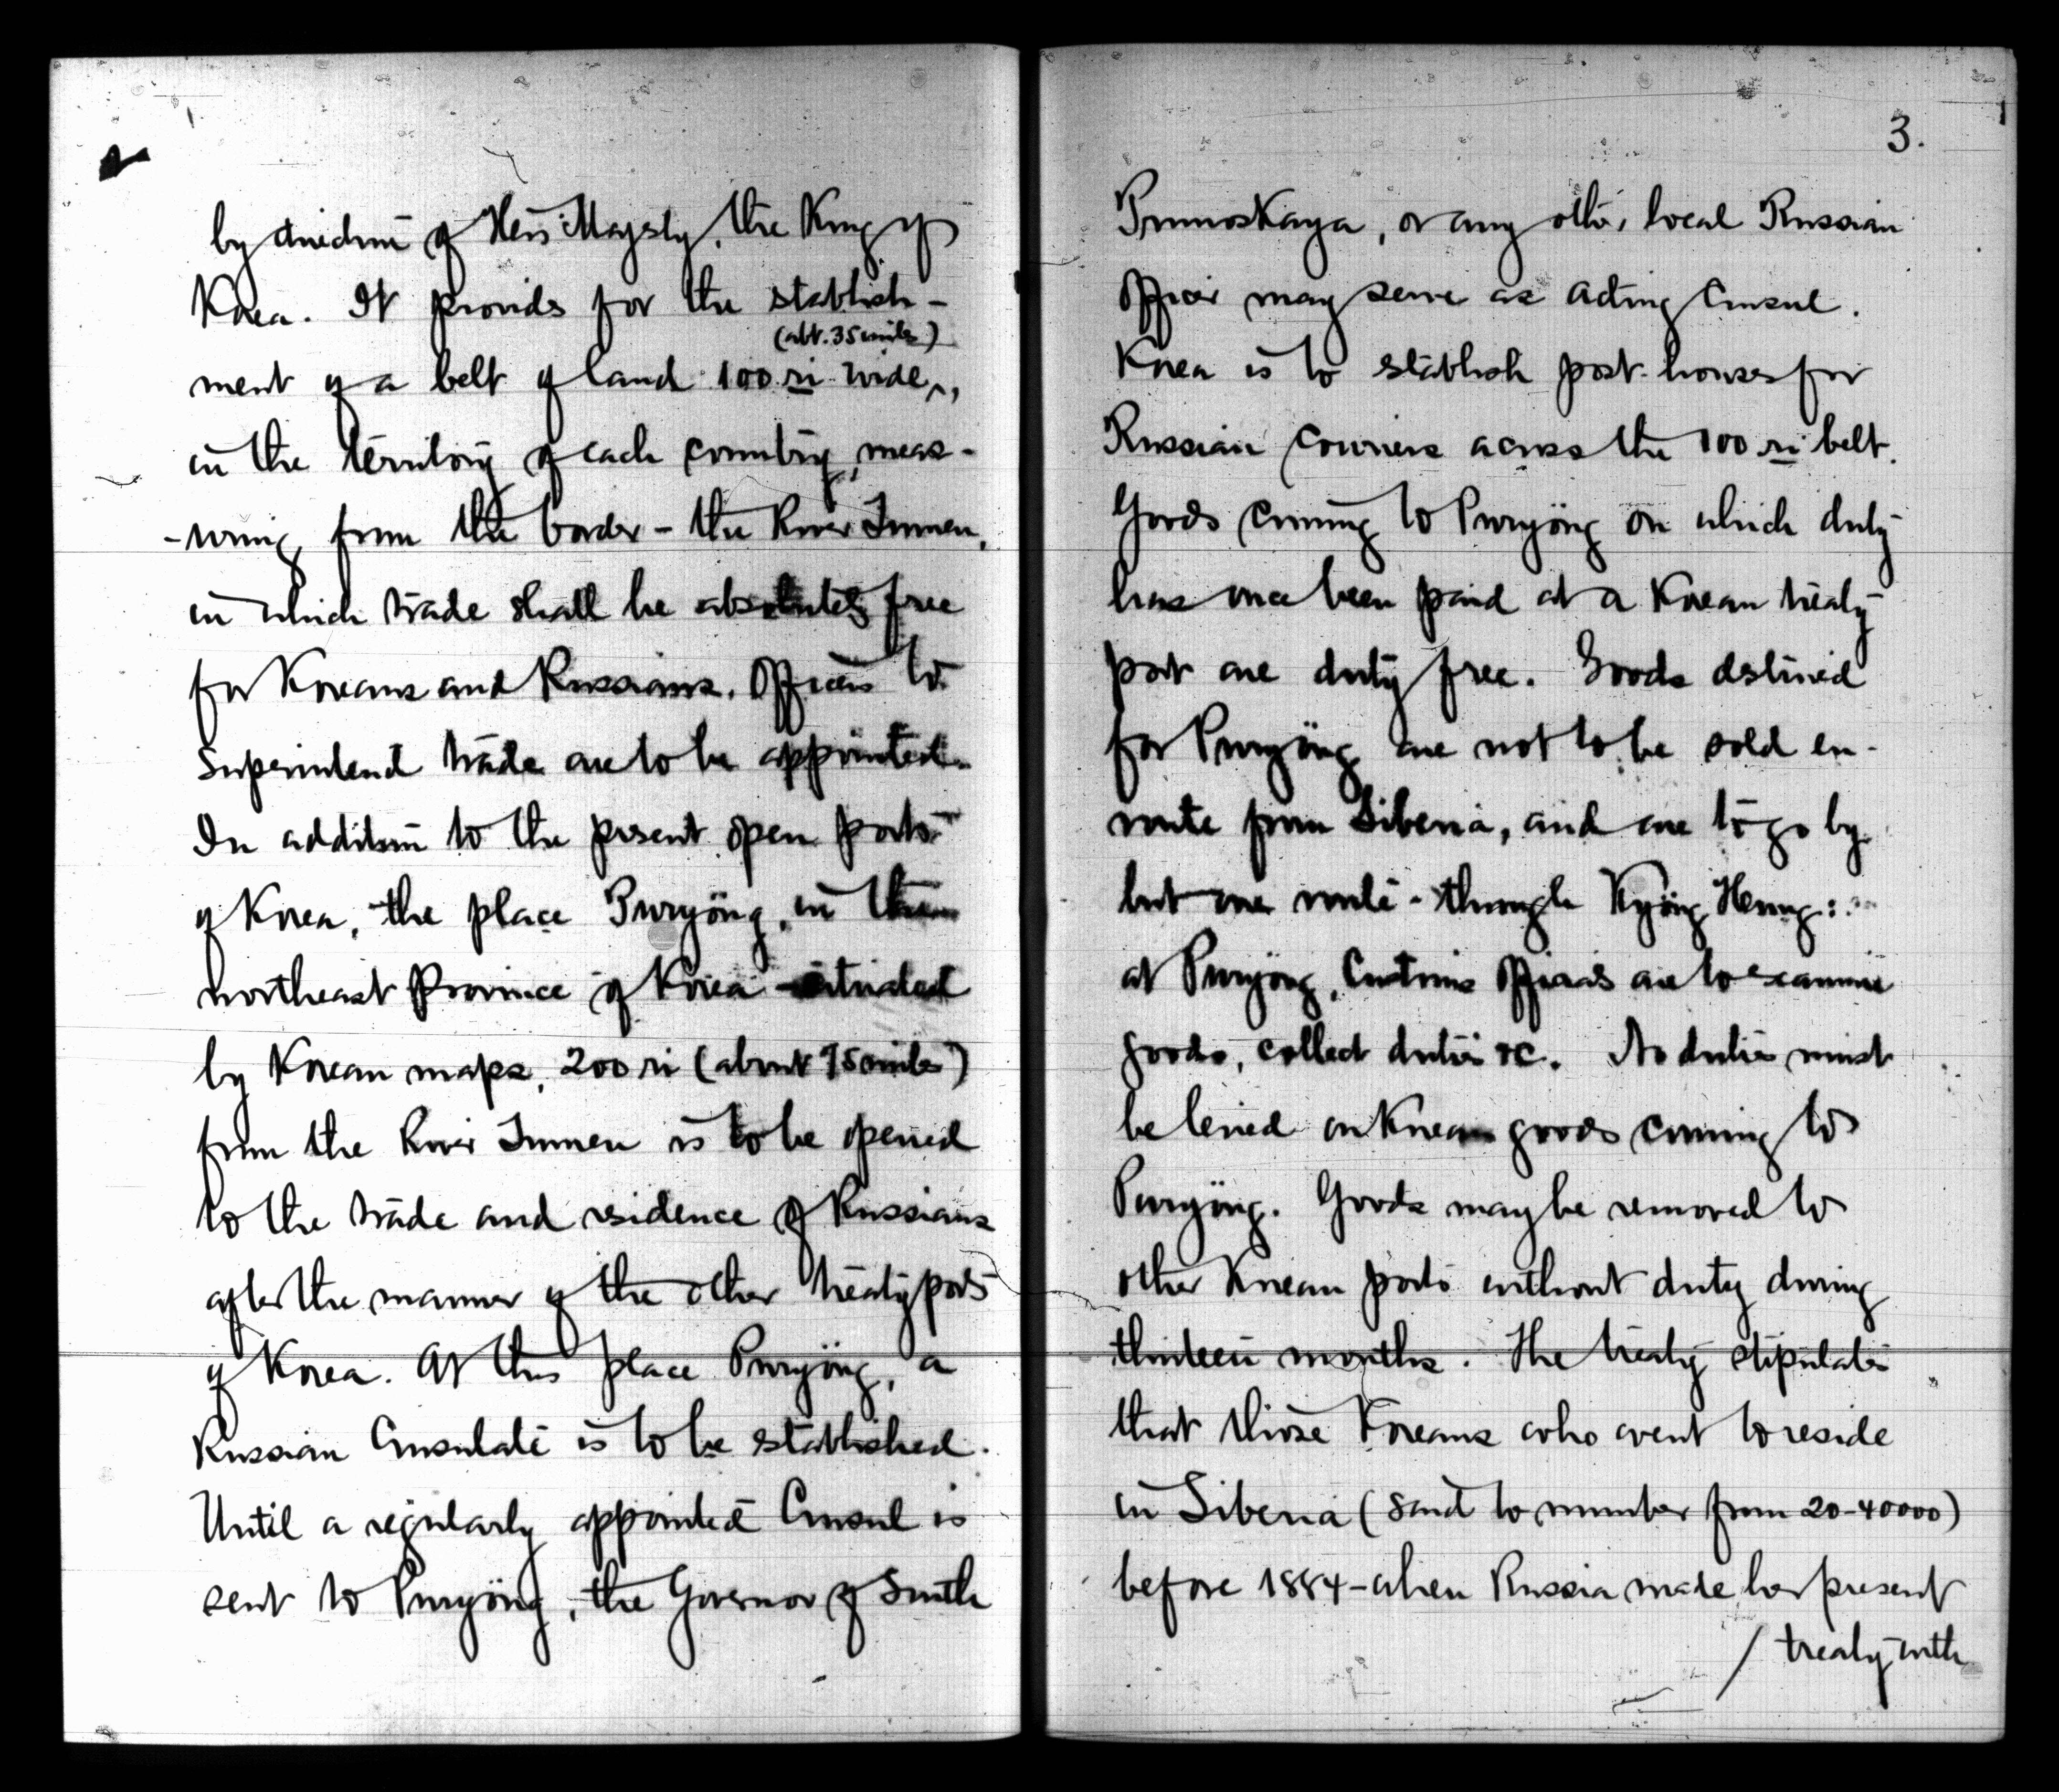 2
by direction of His Majesty, the King of
Korea. It provids for the establish-
(abt. 35 miles)
ment of a belt of land 100 ri wide,
in the territory of each country, meas-
-uring from the border - the River Tumen,
in which trade shall be absolutely free
for Koreans and Russians. Officers to
superintend trade are to be appointed.
In addition to the present open ports
of Korea, the place Puryöng, in the
northeast Province of Korea situated
by Korean maps, 200 ri (about 75 miles)
from the River Tumen is to be opened
to the trade and residence of Russians
after the manner of the other treaty ports
of Korea. At this place Puryöng, a
Russian Consulate is to be established.
Until a regularly appointed Consul is
sent to Puryöng, the Governor of South
3.
Primoskaya, or any other local Russian
Officer may serve as Acting Consul.
Korea is to establish post-houses for
Russian Couriers across the 100 ri belt.
Goods coming to Puryöng on which duty
has once been paid at a Korean treaty
port are duty free. Goods destined
for Puryöng are not to be sold en-
route from Siberia, and are to go by
but one route - through Kyöng Heung:
at Puryöng, Customs Officers are to examine
goods, collect duties &c. No duties must
be levied on Korean goods coming to
Puryöng. Goods may be removed to
other Korean ports without duty during
thirteen months. The treaty stipulates
that those Koreans who went to reside
in Siberia (said to number from 20-40000)
before 1884 - when Russia made her present
/ treaty with